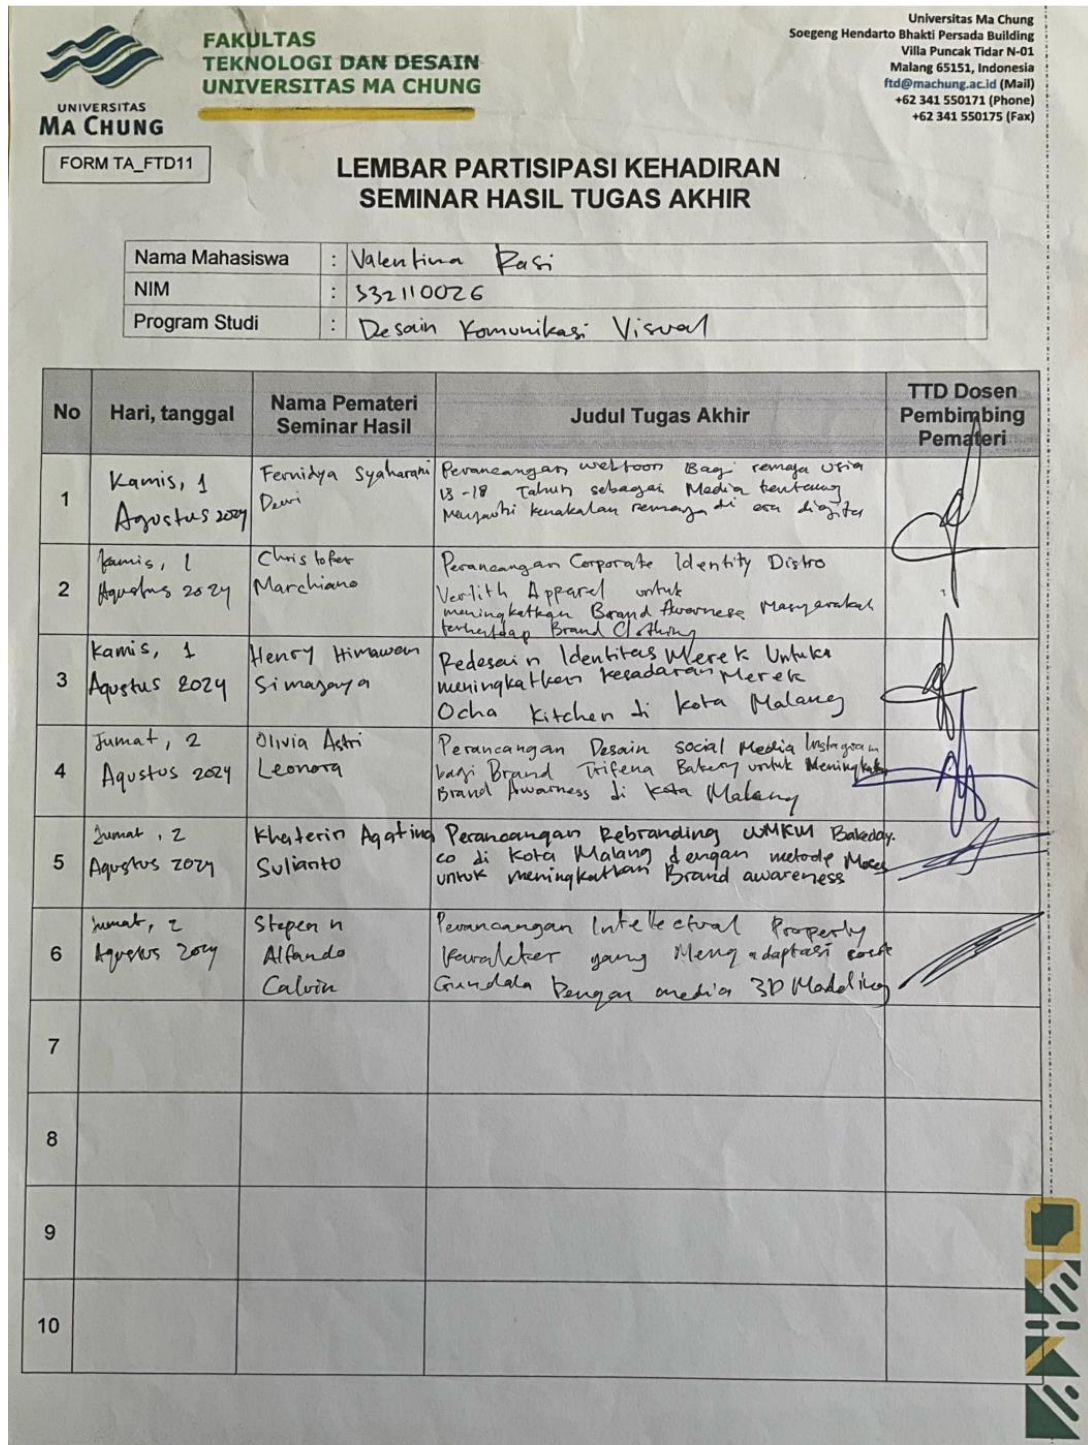 UNIVERSITAS
MA CHUNG
FAKULTAS
TEKNOLOGI DAN DESAIN
UNIVERSITAS MA CHUNG
Universitas Ma Chung
Soegeng Hendarto Bhakti Persada Building
Villa Puncak Tidar N-01
Malang 65151, Indonesia
ftd@machung.ac.id (Mail)
+62 341 550171 (Phone)
+62 341 550175 (Fax)
FORM TA_FTD11
LEMBAR PARTISIPASI KEHADIRAN
SEMINAR HASIL TUGAS AKHIR
Nama Mahasiswa : Valentina Rasi
NIM : 332110026
Program Studi : Desain Komunikasi Visual
No
Hari, tanggal
Nama Pemateri
Seminar Hasil
Judul Tugas Akhir
TTD Dosen
Pembimbing
Pemateri
1
Kamis, 1
Agustus 2024
Fernidya Syaharani
Dewi
Perancangan webtoon Bagi remaja usia
13-18 Tahun sebagai Media tentang
kenakalan remaja di era digital
2
Kamis, 1
Agustus 2024
Christofer
Marchiano
Perancangan Corporate Identity Distro
Verlith Apparel untuk
meningkatkan Brand Awarness Masyarakat
terhadap Brand Clothing
3
Kamis, 1
Agustus 2024
Henry Himawan
Simajaya
Redesain Identitas Merek Untuk
meningkatkan kesadaran Merek
Ocha Kitchen di Kota Malang
4
Jumat, 2
Agustus 2024
Olivia Astri
Leonora
Perancangan Desain social Media Instagram
bagi Brand Trifena Bakery untuk
Brand Awarness di Kota Malang
5
Jumat, 2
Agustus 2024
Khaterin Agatina
Sulianto
Perancangan Rebranding UMKM Bakeday.
co di Kota Malang dengan metode
untuk meningkatkan Brand awareness
6
Jumat, 2
Agustus 2024
Stepen n
Alfando
Calvin
Perancangan Intellectual Property
Karakter yang Mengadaptasi
Gundala Dengan media 3D Modeling
7
8
9
10